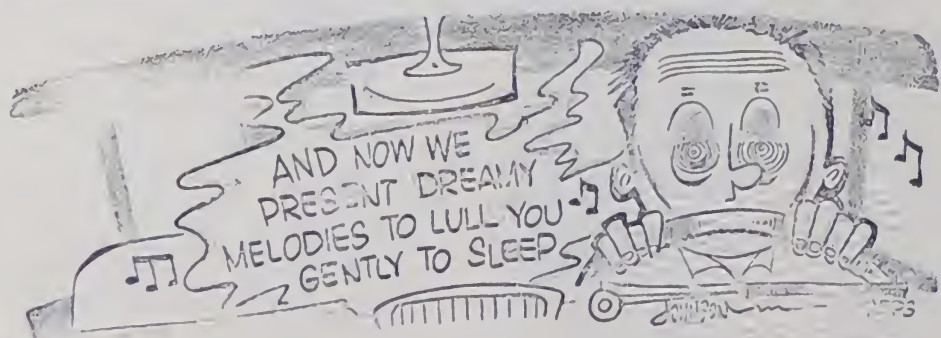 AND NOW WE
PRESENT DREAMY
MELODIES TO LULL YOU
GENTLY TO SLEEP